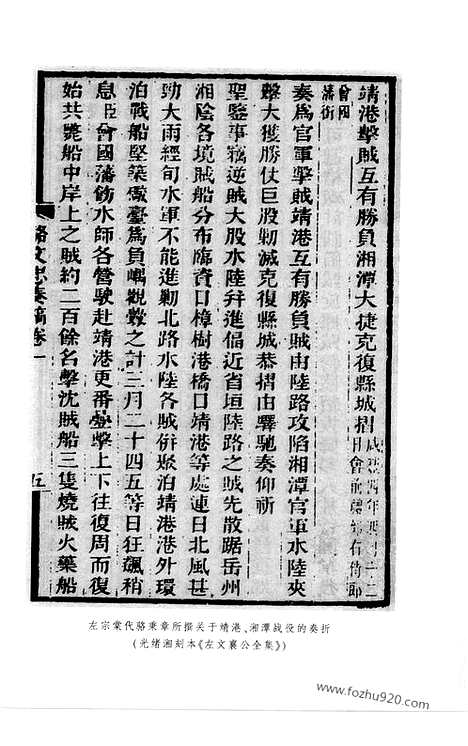 靖港擊賊互有勝負湘潭大捷克復縣城摺
咸豐四年四月十二
日會前禮部右侍郎
曾國
藩銜
奏爲官軍擊賊靖港互有勝負賊由陸路攻陷湘潭官軍水陸夾
擊大獲勝仗巨股勦滅克復縣城恭摺由驛馳奏仰祈
聖鑒事竊逆賊大股水陸幷進偪近省垣陸路之賊先散踞岳州
湘陰各境賊船分布臨資口樟樹港橋口靖港等處連日北風甚
勁大雨經旬水軍不能進勦北路水陸各賊併聚泊靖港港外環
泊戰船堅築礮臺爲負嵎觀釁之計三月二十四五等日狂飆稍
息臣會國藩飭水師各營駛赴靖港更番轟擊上下往復周而復
始共斃船中岸上之賊約二百餘名擊沈賊船三隻燒賊火藥船
駱文忠奏稿卷一
五
左宗棠代骆秉章所撰关于靖港、湘潭战役的奏折
(光绪湘刻本《左文襄公全集》)
www.fozhu920.com